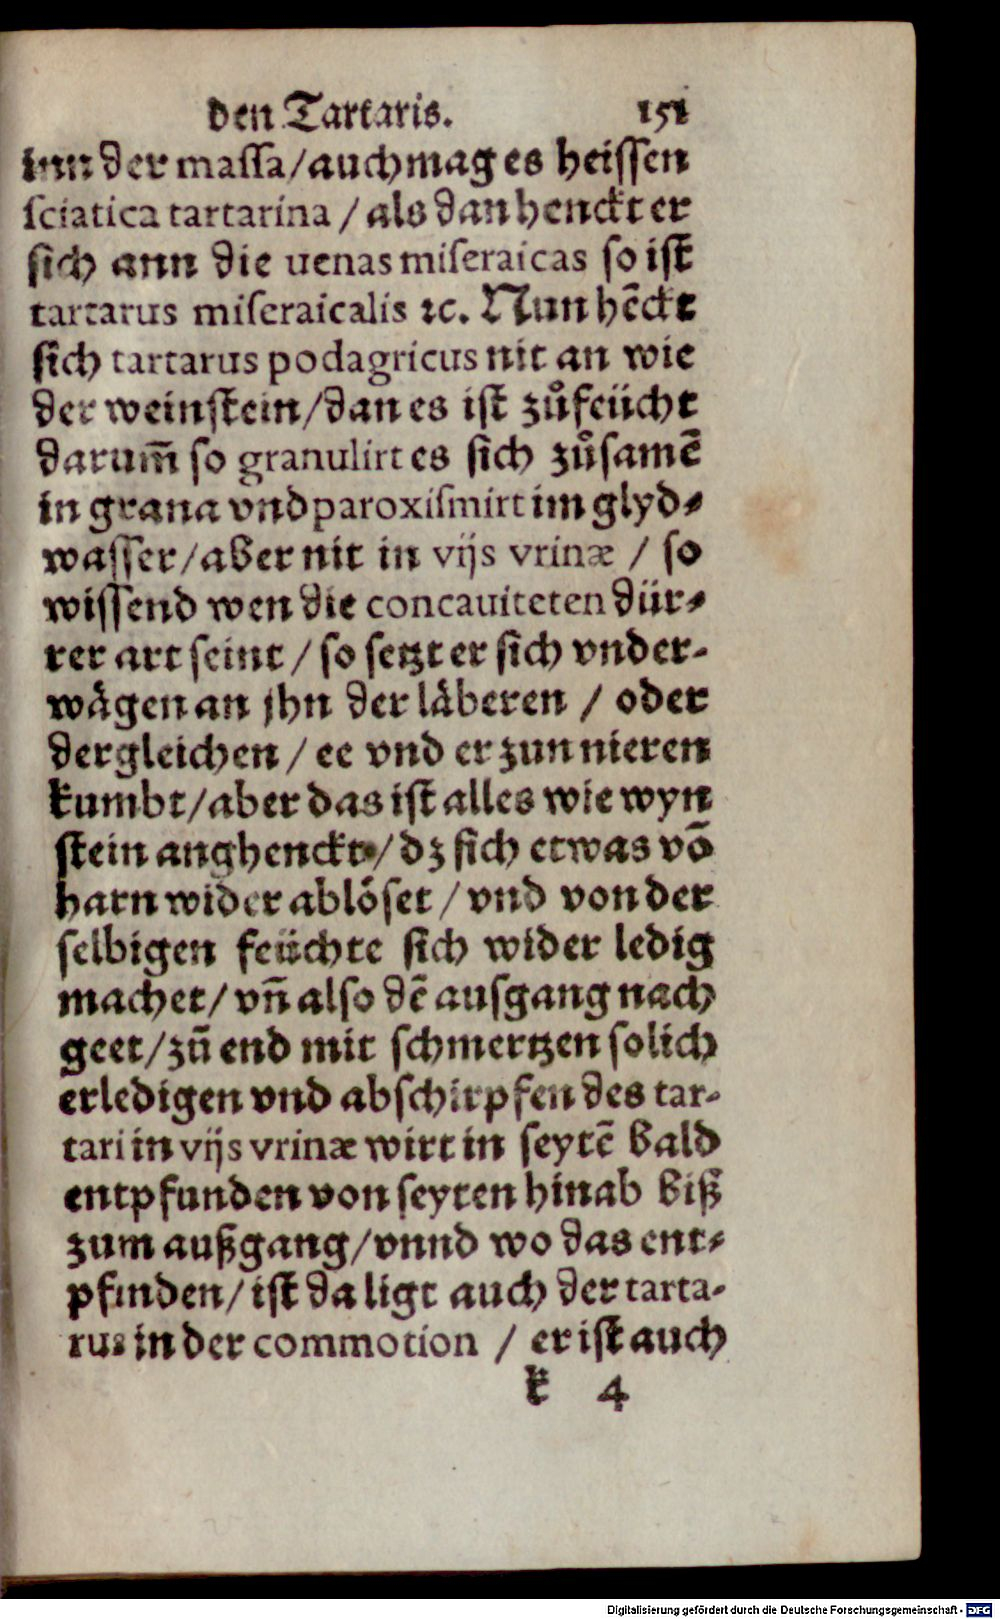 den Tartaris. 151
inn der massa/auch mag es heissen
sciatica tartarina / als dan henckt er
sich ann die uenas miseraicas so ist
tartarus miseraicalis ꝛc. Nun hēckt
sich tartarus podagricus nit an wie
der weinstein/dan es ist zůfeücht
darum̄ so granulirt es sich zůsamē
in grana vnd paroxismirt im glyd⸗
wasser/aber nit in vijs vrinæ / so
wissend wen die concauiteten dür⸗
rer art seint / so setzt er sich vnder-
wägen an jhn der läberen / oder
dergleichen / ee vnd er zun nieren
kumbt/aber das ist alles wie wyn
stein anghenckt/ dz sich etwas vō
harn wider ablöset / vnd von der
selbigen feüchte sich wider ledig
machet/ vn̄ also dē ausgang nach
geet/zū end mit schmertzen solich
erledigen vnd abschirpfen des tar-
tari in vijs vrinæ wirt in seytē bald
entpfunden von seyten hinab biß
zum außgang/vnnd wo das ent⸗
pfinden/ ist da ligt auch der tarta-
rus in der commotion / er ist auch
k 4
Digitalisierung gefördert durch die Deutsche Forschungsgemeinschaft - DFG